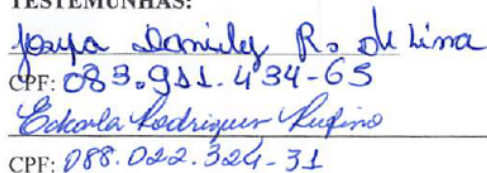 TESTEMUNHAS:
Josefa Daniely R. de Lima
CPF: 083.911.434-65
Edcarla Rodrigues Rufino
CPF: 088.022.324-31